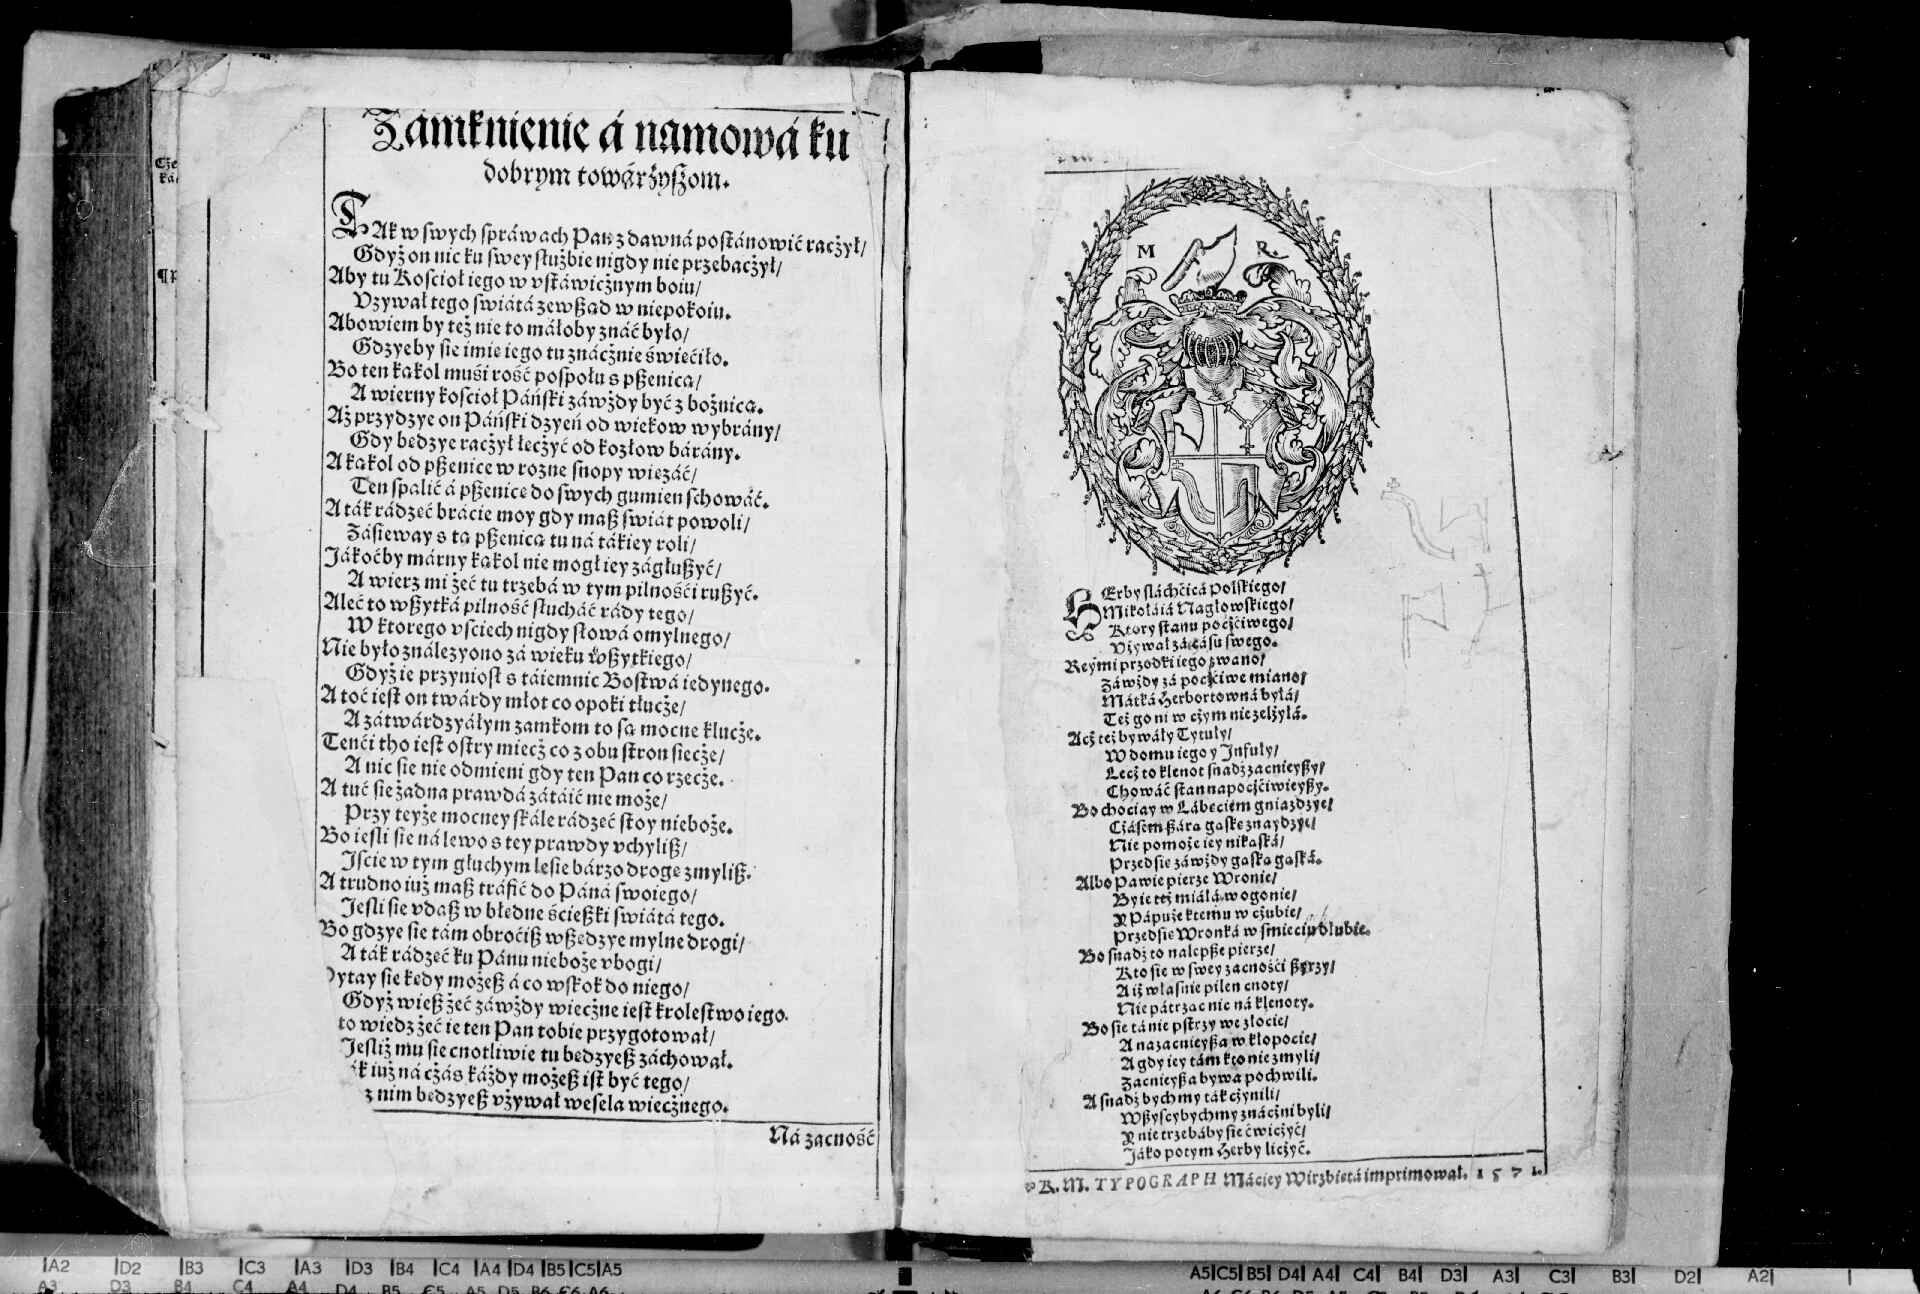 Zámknienie á namowá ku
dobrym towárzyszom.
TAk w swych spráwach Pan z dawná postánowić racżył/
Gdyż on nic ku swey służbie nigdy nie przebacżył/
Aby tu Kościoł iego w vstáwicżnym boiu/
Vzywał tego świátá zewßąd w niepokoiu.
Abowiem by też nie to máłoby znáć było/
Gdzyeby sie imię iego tu znácżnie świećiło.
Bo ten kąkol muśi rość pospołu s pßenicą/
A wierny kościoł Páński záwżdy być z bożnicą.
Aż przydzye on Páński dzyeń od wiekow wybrány/
Gdy będzye racżył łecżyć od kozłow bárány.
A kąkol od pßenice w rozne snopy wiezáć/
Ten spalić á pßenicę do swych gumien schowáć.
A ták rádzęć brácie moy gdy maß świát powoli/
Zásieway s tą pßenicą tu ná tákiey roli/
Jákoćby márny kąkol nie mogł iey zágłußyć/
A wierz mi żeć tu trzebá w tym pilnośći rußyć.
Aleć to wßytká pilność słucháć rády tego/
W ktorego vściech nigdy słowá omylnego/
Nie było ználezyono zá wieku wßytkiego/
Gdyż ie przyniosł s táiemnic Bostwá iedynego.
A toć iest on twárdy młot co opoki tłucże/
A zátwárdzyáłym zamkom to są mocne klucże.
Tenći tho iest ostry miecż co z obu stron siecże/
A nic sie nie odmieni gdy ten Pan co rzecże.
A tuć sie żadna prawdá zátáić nie może/
Przy teyże mocney skále rádzęć stoy nieboże.
Bo iesli sie ná lewo s tey prawdy vchyliß/
Jście w tym głuchym lesie bárzo drogę zmyliß.
A trudno iuż maß tráfić do Páná swoiego/
Jesli sie vdaß w błędne ścießki świátá tego.
Bo gdzye sie tám obroćiß wßędzye mylne drogi/
A ták rádzęć ku Pánu nieboże vbogi/
ytay sie kędy możeß á co wskok do niego/
Gdyż wieß żeć záwżdy wiecżne iest krolestwo iego.
to wiedz żeć ie ten Pan tobie przygotował/
Jesliż mu sie cnotliwie tu będzyeß záchował.
ák iuż ná cżás káżdy możeß ist być tego/
z nim będzyeß vżywał wesela wiecżnego.
Ná zacność
M R.
HErby sláchćicá Polskiego/
Mikołáiá Nagłowskiego/
Ktory stanu pocżćiwego/
Vżywał zá cżásu swego.
Reymi przodki iego zwano/
Záwżdy zá pocżćiwe miano/
Mátká Herbortowná byłá/
Też go ni w cżym nie zelżyłá.
Acż też bywáły Tytuły/
W domu iego y Jnfuły/
Lecż to klenot snadż zacnieyßy/
Chowáć stan napocżćiwieyßy.
Bo chociay w Lábęciem gniazdzye/
Cżásem ßára gąskę znaydzye/
Nie pomoże iey nikáská/
Przedsię záwżdy gąska gąską.
Albo Páwie pierze Wronie/
By ie też miáłá w ogonie/
Y Pápużę ktemu w cżubie/
Przedsię Wronká w śmieciu dłubie.
Bo snadż to nalepße pierze/
Kto sie w swey zacnośći ßyrzy/
A iż własnie pilen cnoty/
Nie pátrząc nic ná klenoty.
Bo sie tá nie pstrzy we złocie/
A nazacnieyßa w kłopocie/
A gdy iey tám kto nie zmyli/
Zacnieyßa bywa po chwili.
A snadż bychmy ták cżynili/
Wßyscybychmy znácżni byli/
Y nie trzebáby sie ćwicżyć/
Jáko potym Herby licżyć.
K. M. TYPOGRAPH Máciey Wirzbietá imprimował. 1571.
A2 D2 B3 C3 A3 D3 B4 C4 A4 D4 B5 C5 A5
A3 D3 B4 C4 A4 D4 B5 C5 A5 D5 B6 C6 A6
A5 C5 B5 D4 A4 C4 B4 D3 A3 C3 B3 D2 A2